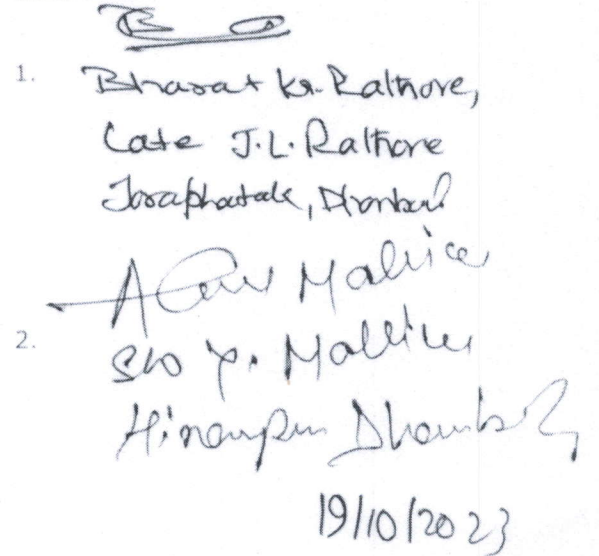 1.
Bharat Kr. Rathore,
Late J.L. Rathore
Joraphatak, Dhanbad
Mallick
2.
S/o Y. Mallick
Hirapur Dhanbad
19/10/2023